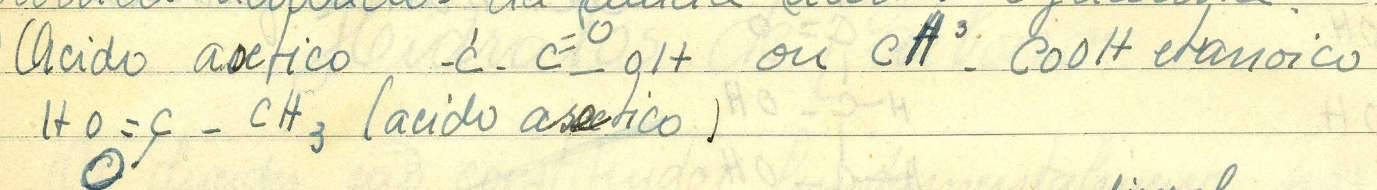 Acido acetico -C-C=O-OH ou CH3-COOH etanoico
HO=C-CH3 (acido acetico)
O